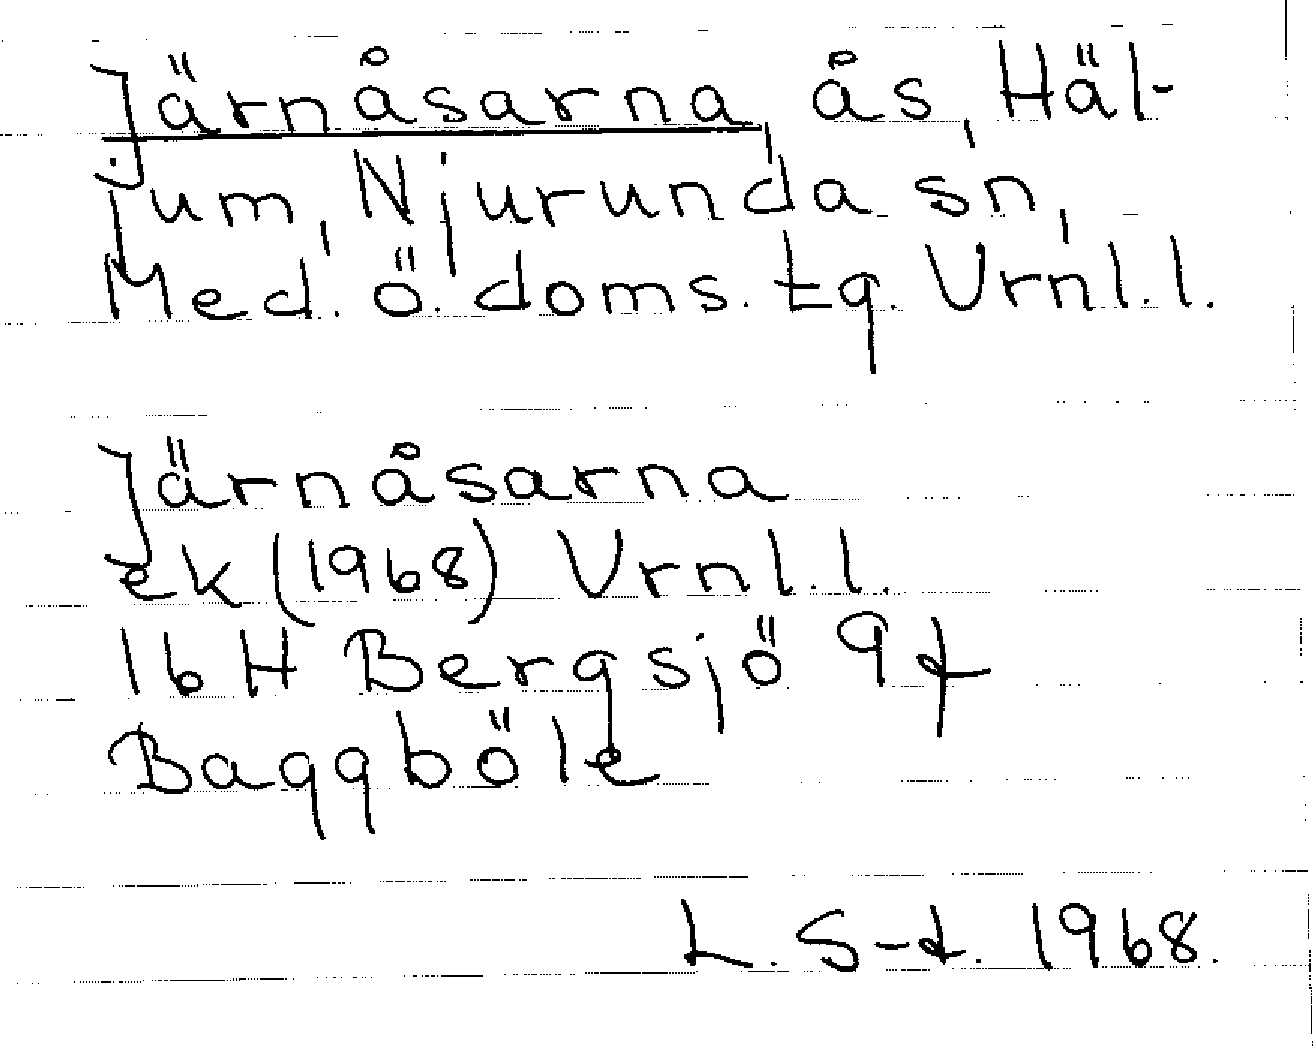 Järnåsarna, ås, Häl-
jum, Njurunda sn,
Med. ö. doms. tg. Vrnl.l.
Järnåsarna
ek (1968) Vrnl.l.
16 H Bergsjö 9f
Baggböle
L. S-t. 1968.